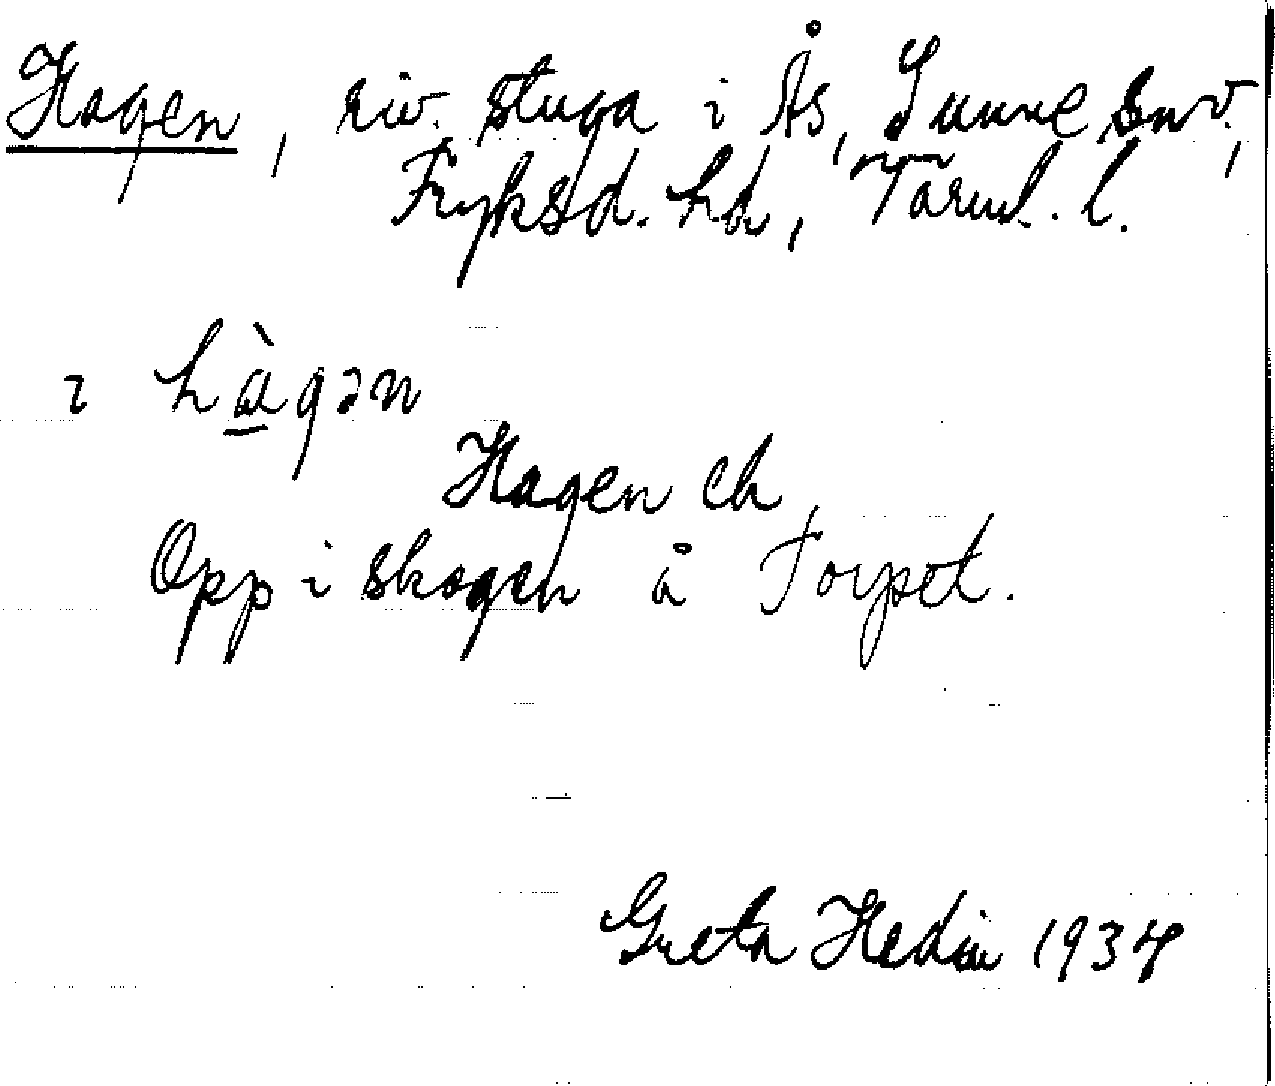 Hagen, riv. stuga i Ås, Sunne snv.,
Fryksd. hd, Värml. l.
i hàgən
Hagen ek
Opp i skogen å Torpet.
Greta Hedin 1934